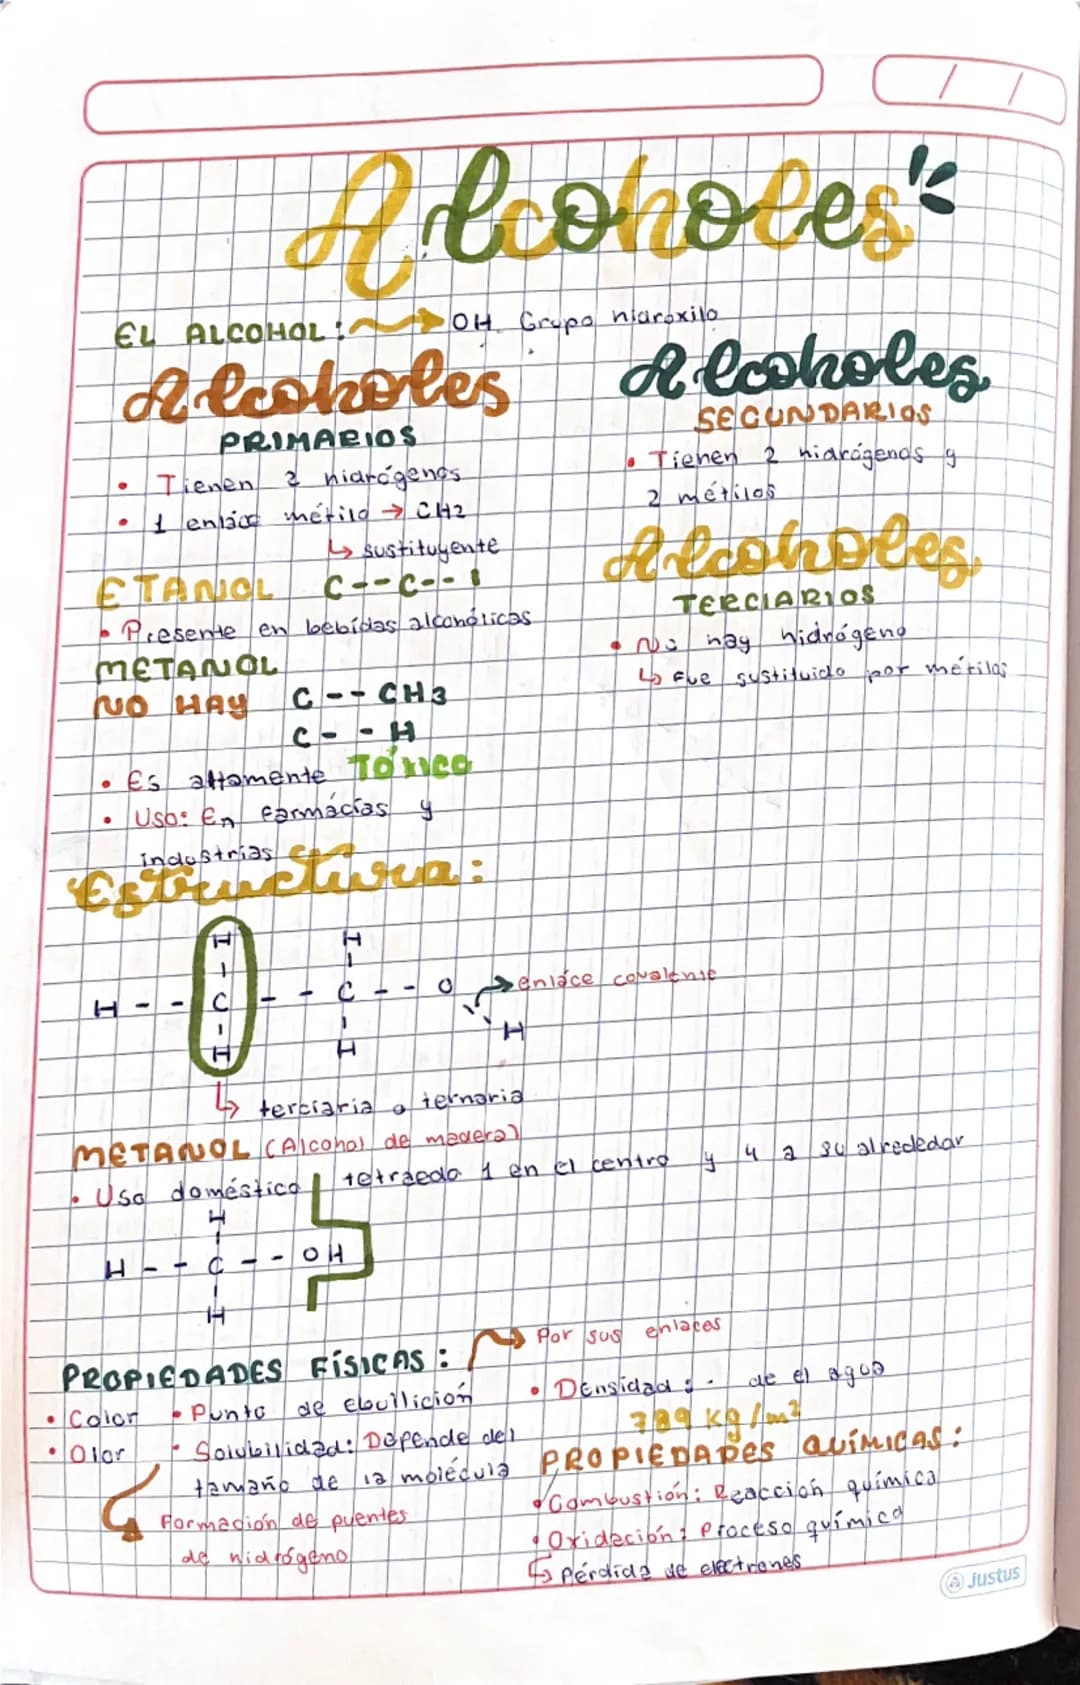 Alcoholes
EL ALCOHOL: → OH Grupo hidroxilo
Alcoholes
PRIMARIOS
• Tienen 2 hidrógenos
• 1 enlace metilo → CH2
↳ sustituyente
ETANOL C--C--
• Presente en bebidas alcohólicas
METANOL
NO HAY C--CH3
C--H
• Es altamente Tóxico
• Uso: En farmácias y
industrias
Alcoholes
SECUNDARIOS
• Tienen 2 hidrógenos y
2 métilos
Alcoholes
TERCIARIOS
• No hay hidrógeno
↳ Fue sustituido por métilos
Estructura:
H H
H--C--C--O → enlace covalente
H H H
↳ terciaria o ternaria
METANOL (Alcohol de madera)
• Uso doméstico tetraedo 1 en el centro y 4 a su alrededor
H
H--C--OH
H
PROPIEDADES FÍSICAS: → Por sus enlaces
• Color • Punto de ebullición
• Olor • Solubilidad: Depende del
tamaño de la molécula
Formación de puentes
de hidrógeno
• Densidad: de el agua
789 kg/m²
PROPIEDADES QUÍMICAS:
• Combustión: Reacción química
• Oxidación: Proceso químico
↳ Pérdida de electrones
Justus